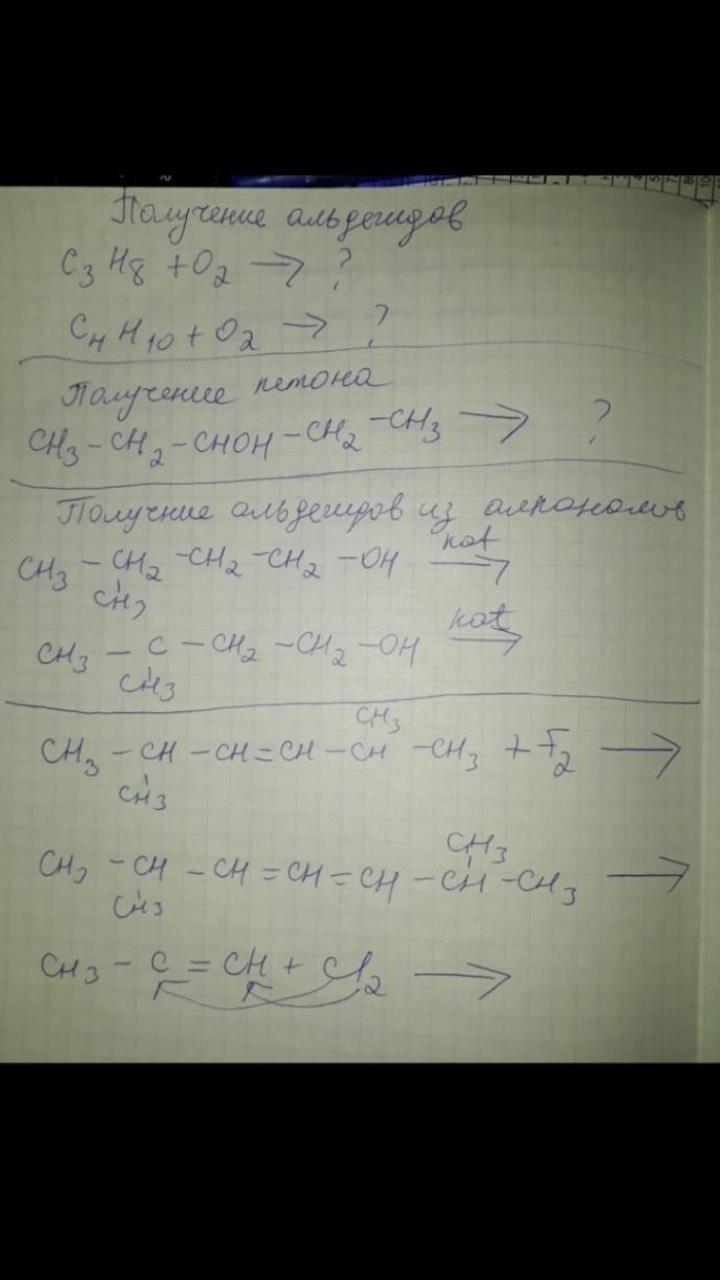 Получение альдегидов
C3H8 + O2 → ?
C4H10 + O2 → ?
Получение петона
CH3 – CH2 – CHOH – CH2 – CH3 → ?
Получние альдегидов из алканолов
CH3 – CH2 – CH2 – CH2 – OH kat →
CH3
CH3 – C – CH2 – CH2 – OH kat →
CH3
CH3
CH3 – CH – CH = CH – CH – CH3 + F2 →
CH3
CH3
CH3 – CH – CH = CH = CH – CH – CH3 →
CH3
CH3 – C = CH + Cl2 →